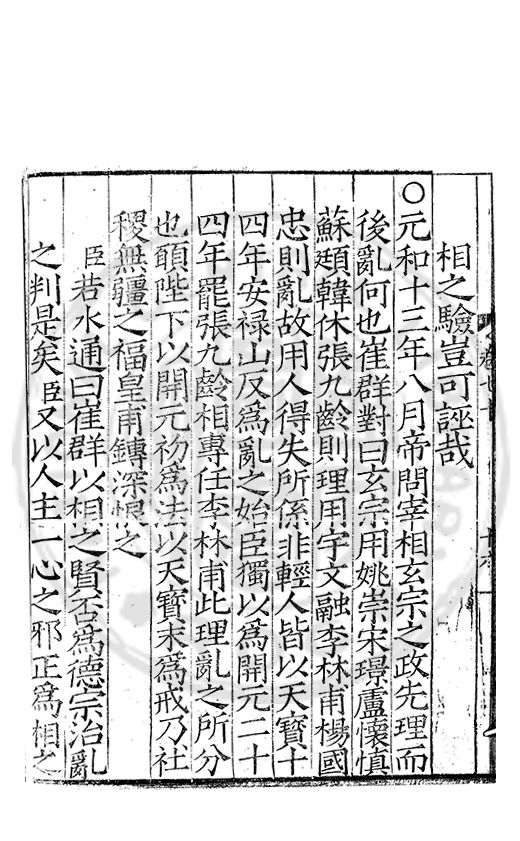 相之驗豈可誣哉
○元和十三年八月帝問宰相玄宗之政先理而
後亂何也崔群對曰玄宗用姚崇宋璟盧懷慎
蘇頲韓休張九齡則理用宇文融李林甫楊國
忠則亂故用人得失所係非輕人皆以天寶十
四年安祿山反為亂之始臣獨以為開元二十
四年罷張九齡相專任李林甫此理亂之所分
也願陛下以開元初為法以天寶末為戒乃社
稷無疆之福皇甫鏄深恨之
臣若水通曰崔群以相之賢否為德宗治亂
之判是矣臣又以人主一心之邪正為相之